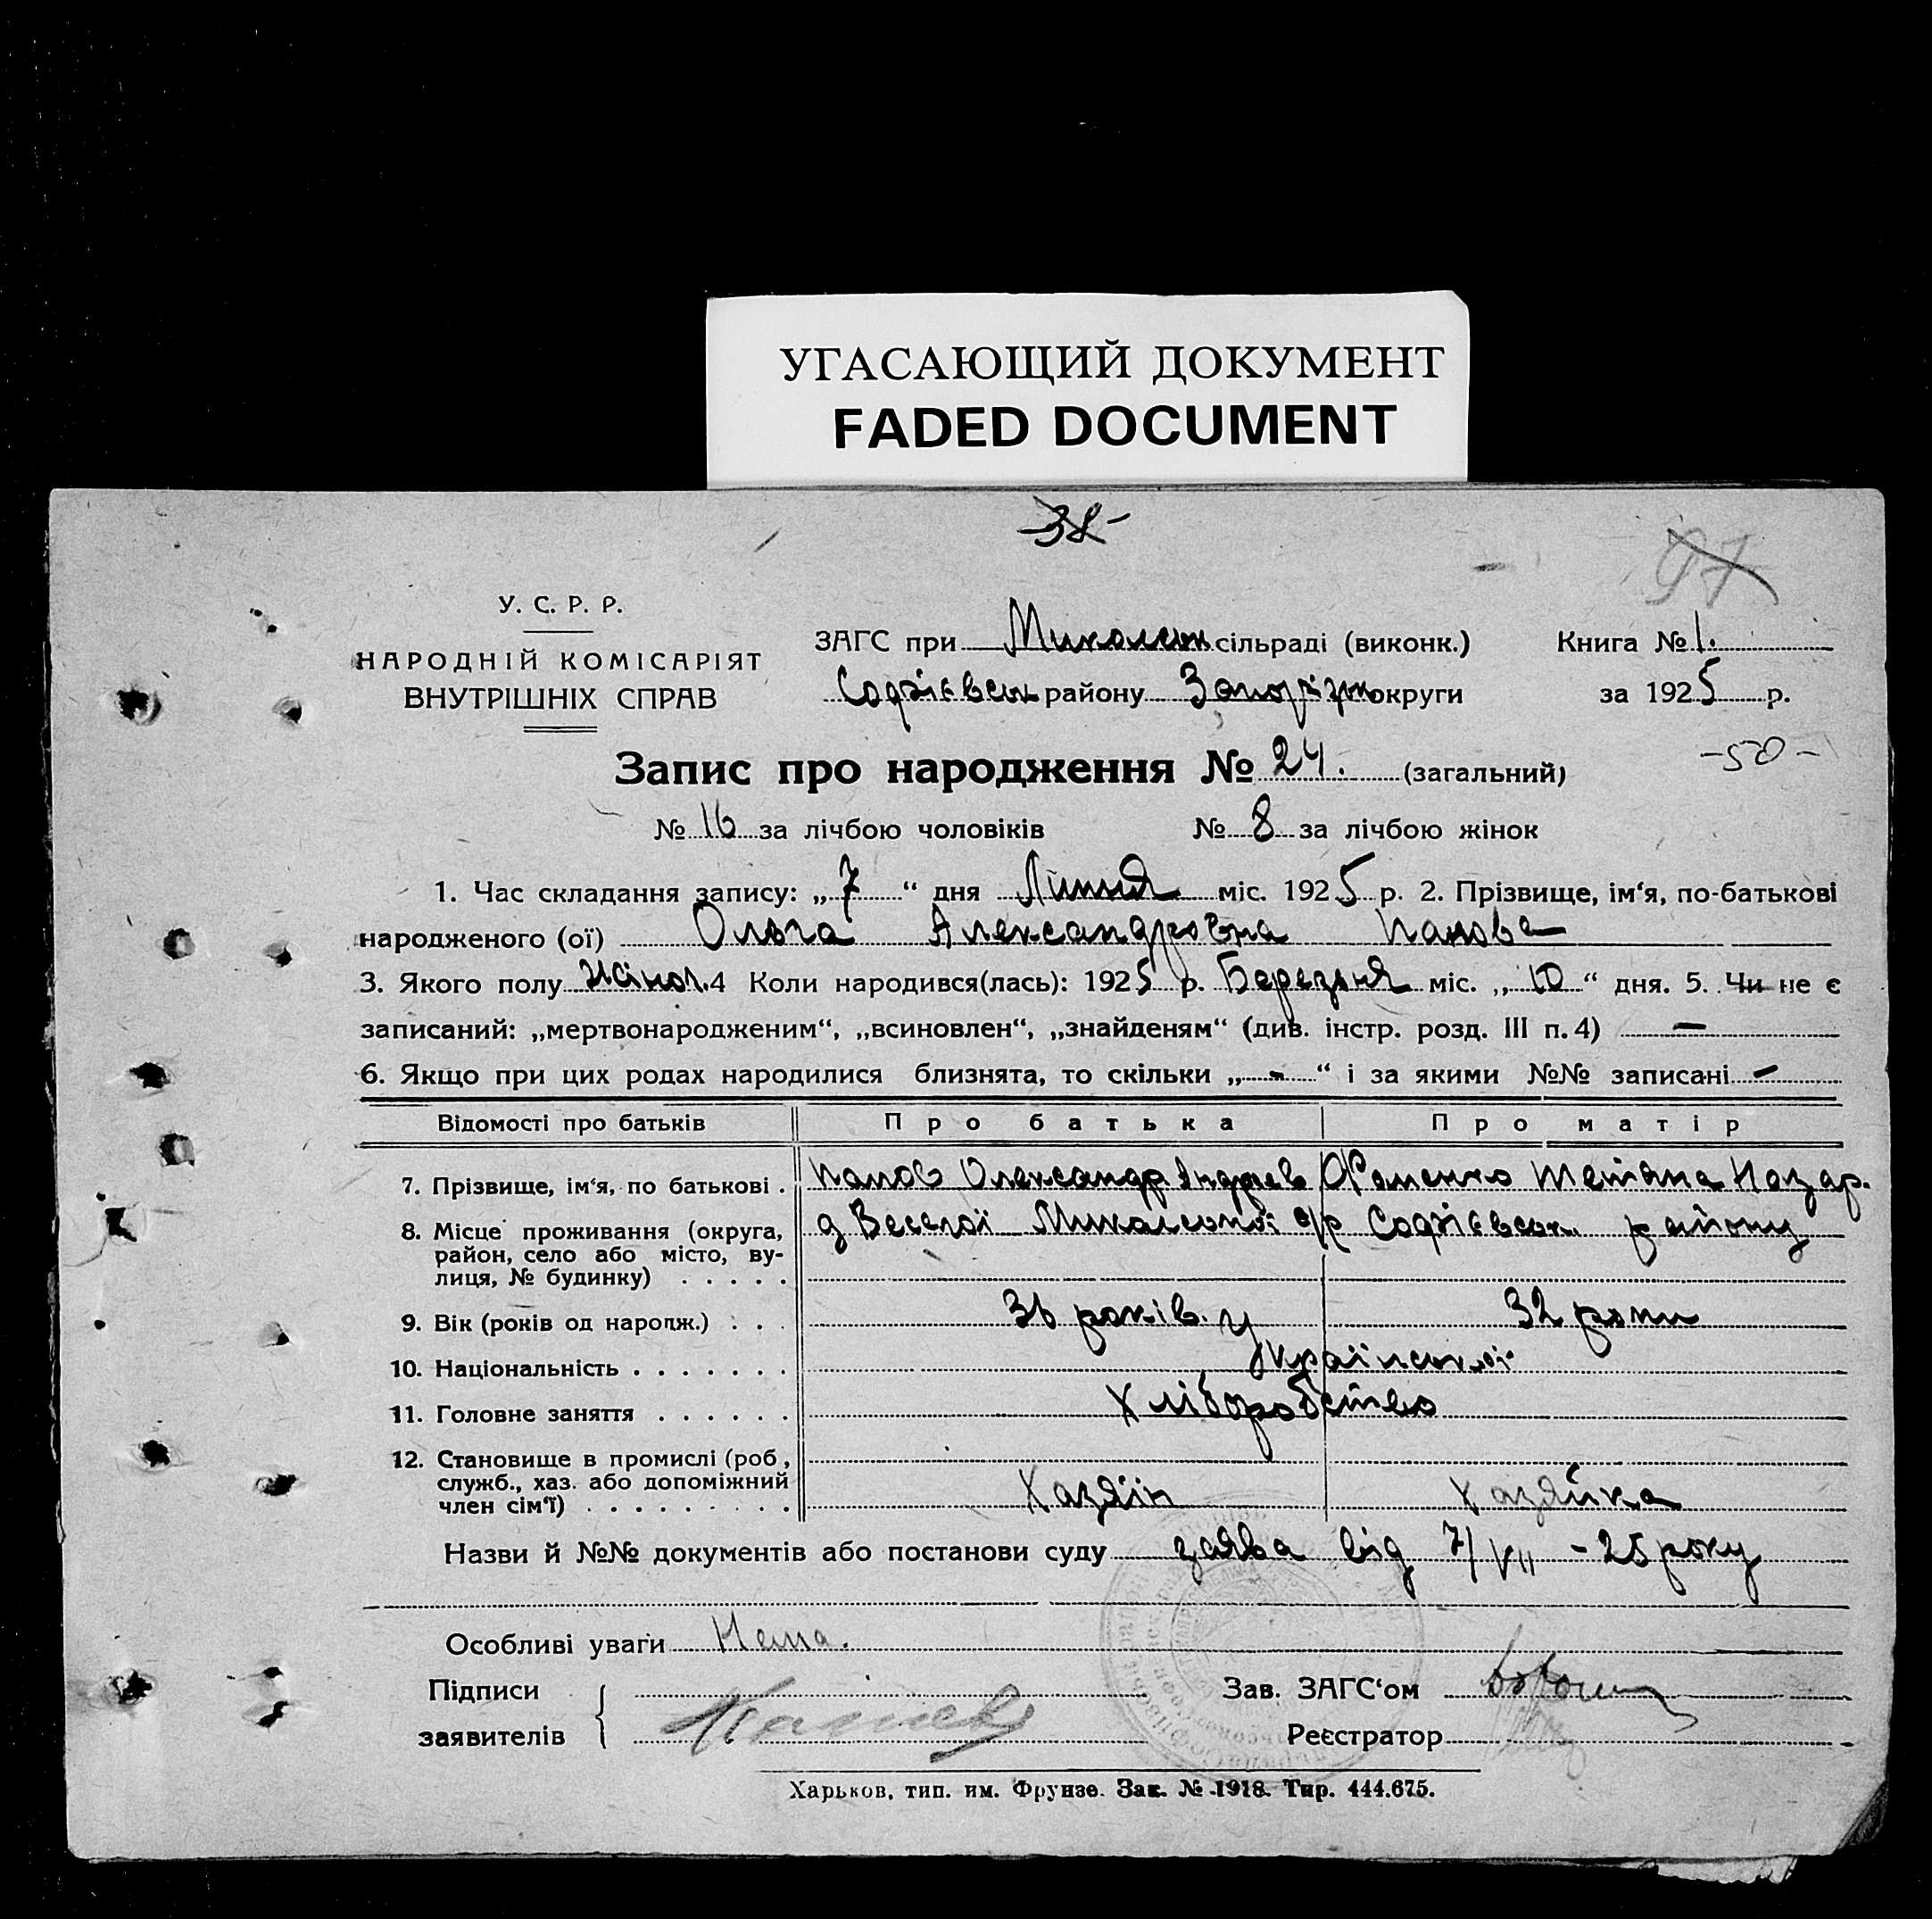 УГАСАЮЩИЙ ДОКУМЕНТ
FADED DOCUMENT
-38-
97
У. С. Р. Р.
НАРОДНІЙ КОМІСАРІЯТ
ВНУТРІШНІХ СПРАВ
ЗАГС при Миколськ сільраді (виконк.)
Софіївськ району Запоріжк округи
Книга № 1.
за 1925 р.
-50-
Запис про народження № 24. (загальний)
№ 16 за лічбою чоловіків № 8 за лічбою жінок
1. Час складання запису: „7“ дня Липня міс. 1925 р. 2. Прізвище, ім‘я, по-батькові
народженого (ої) Ольга Александровна
3. Якого полу Жіноч. 4 Коли народився(лась): 1925 р. Березня міс. „10“ дня. 5. Чи не є
записаний: „мертвонародженим“, „всиновлен“, „знайденям“ (див. інстр. розд. III п. 4) —
6. Якщо при цих родах народилися близнята, то скільки „-“ і за якими №№ записані —
Відомості про батьків Про батька Про матір
7. Прізвище, ім‘я, по батькові . Олександр Андрієв Тетяна Назар.
8. Місце проживання (округа, район, село або місто, ву-
лиця, № будинку) . . . . . д Веселої Микольської с/р Софіївськ. району
9. Вік (років од народж.) . . . 36 років. 32 роки
10. Національність . . . . . . . Української
11. Головне заняття . . . . . . Хліборобство
12. Становище в промислі (роб., служб., хаз. або допоміжний
член сім‘ї) . . . . . . . . . Хазяін Хазяйка
Назви й №№ документів або постанови суду заява від 7/VII - 25 року
Особливі уваги Нема.
Підписи
заявителів
Зав. ЗАГС‘ом
Реєстратор
Харьков, тип. им. Фрунзе. Зак. № 1918. Тир. 444.675.